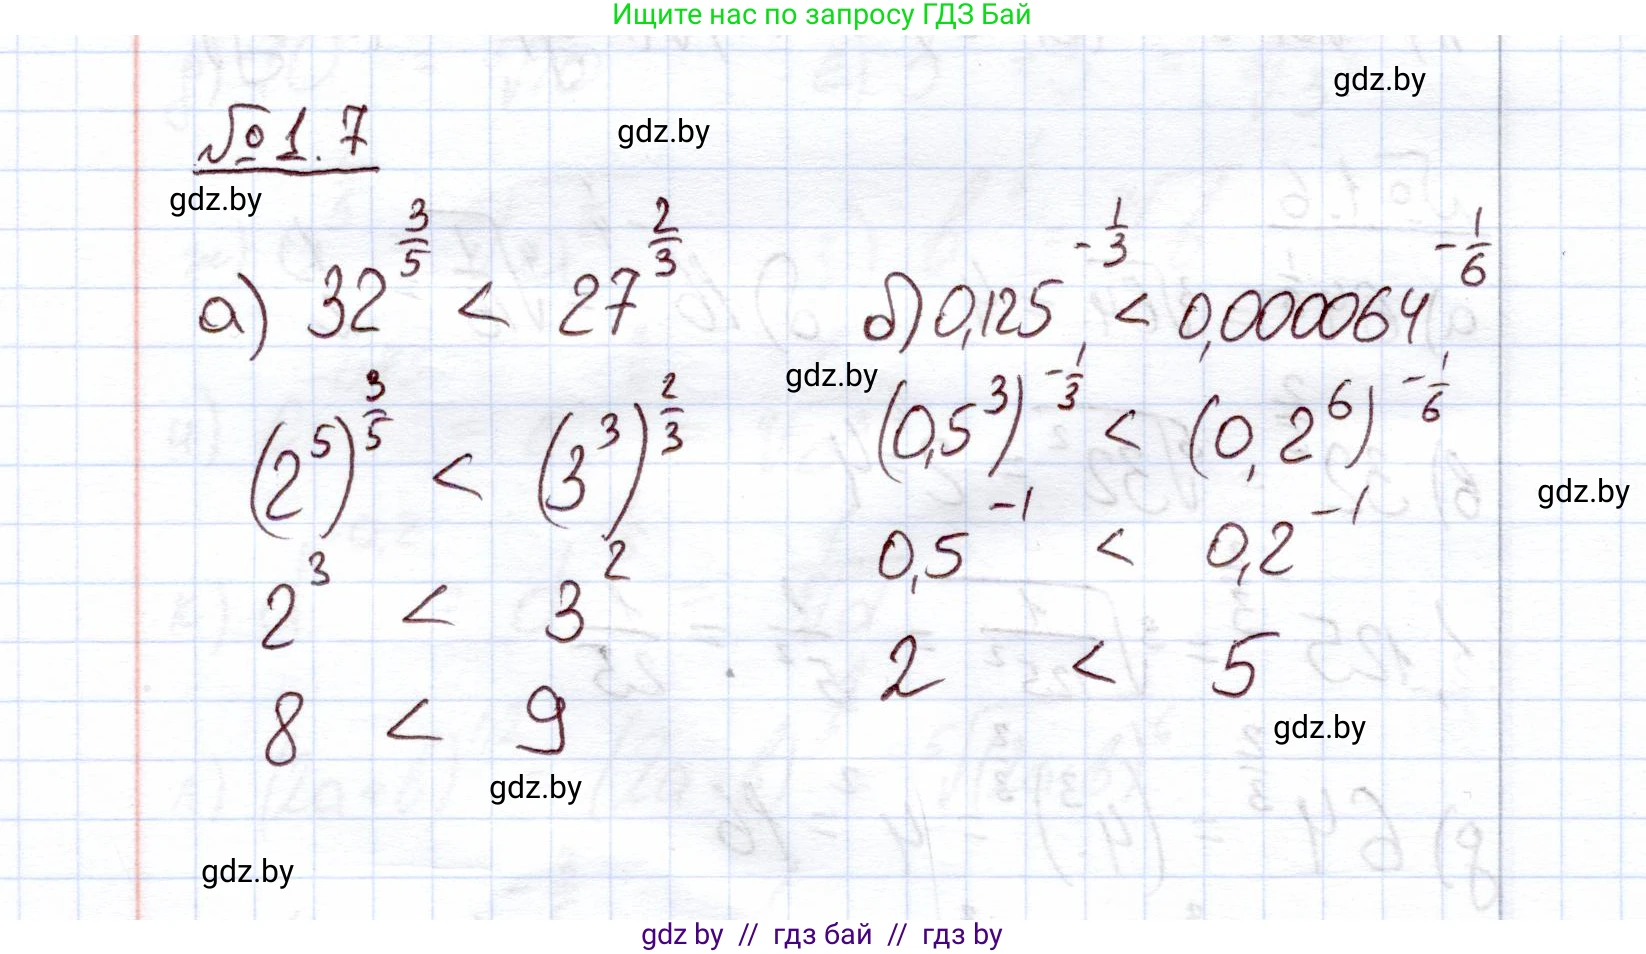 Ищите нас по запросу ГДЗ Бай
gdz.by
№1.7
gdz.by
gdz.by
а) 32^(3/5) < 27^(2/3)
(2^5)^(3/5) < (3^3)^(2/3)
2^3 < 3^2
8 < 9
gdz.by
б) 0,125^(-1/3) < 0,000064^(-1/6)
gdz.by
(0,5^3)^(-1/3) < (0,2^6)^(-1/6)
gdz.by
0,5^(-1) < 0,2^(-1)
2 < 5
gdz.by
gdz.by
gdz by // гдз бай // гдз by